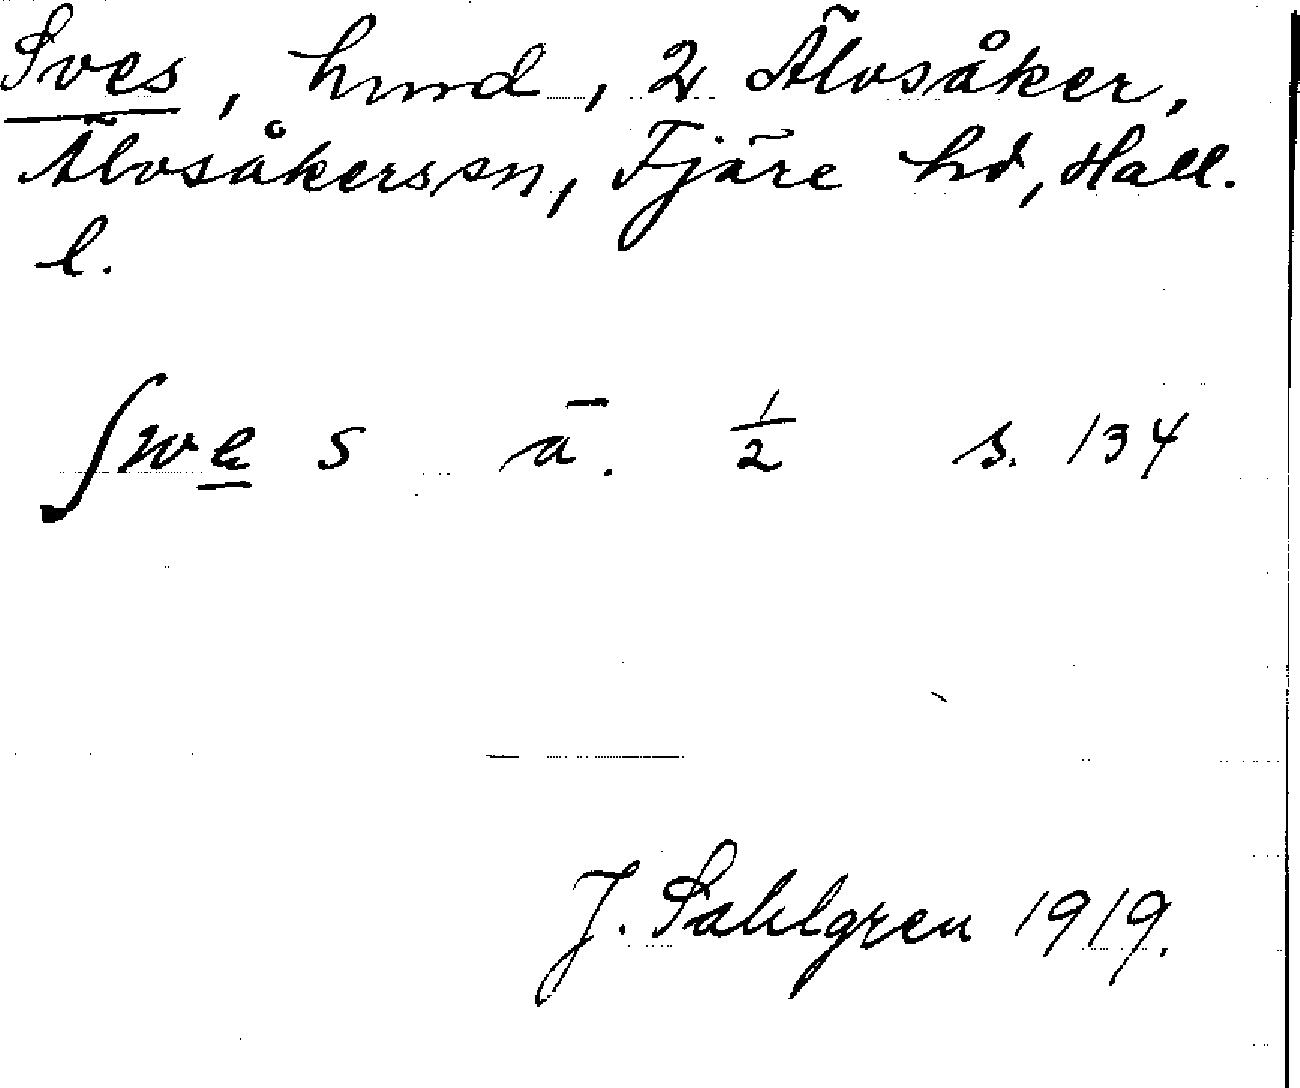 Sves, hund, 2 Älvsåker,
Älvsåkers sn, Fjäre hd, Hall.
l.
ʃwe̲ s ā. 1/2 s. 134
J. Sahlgren 1919.